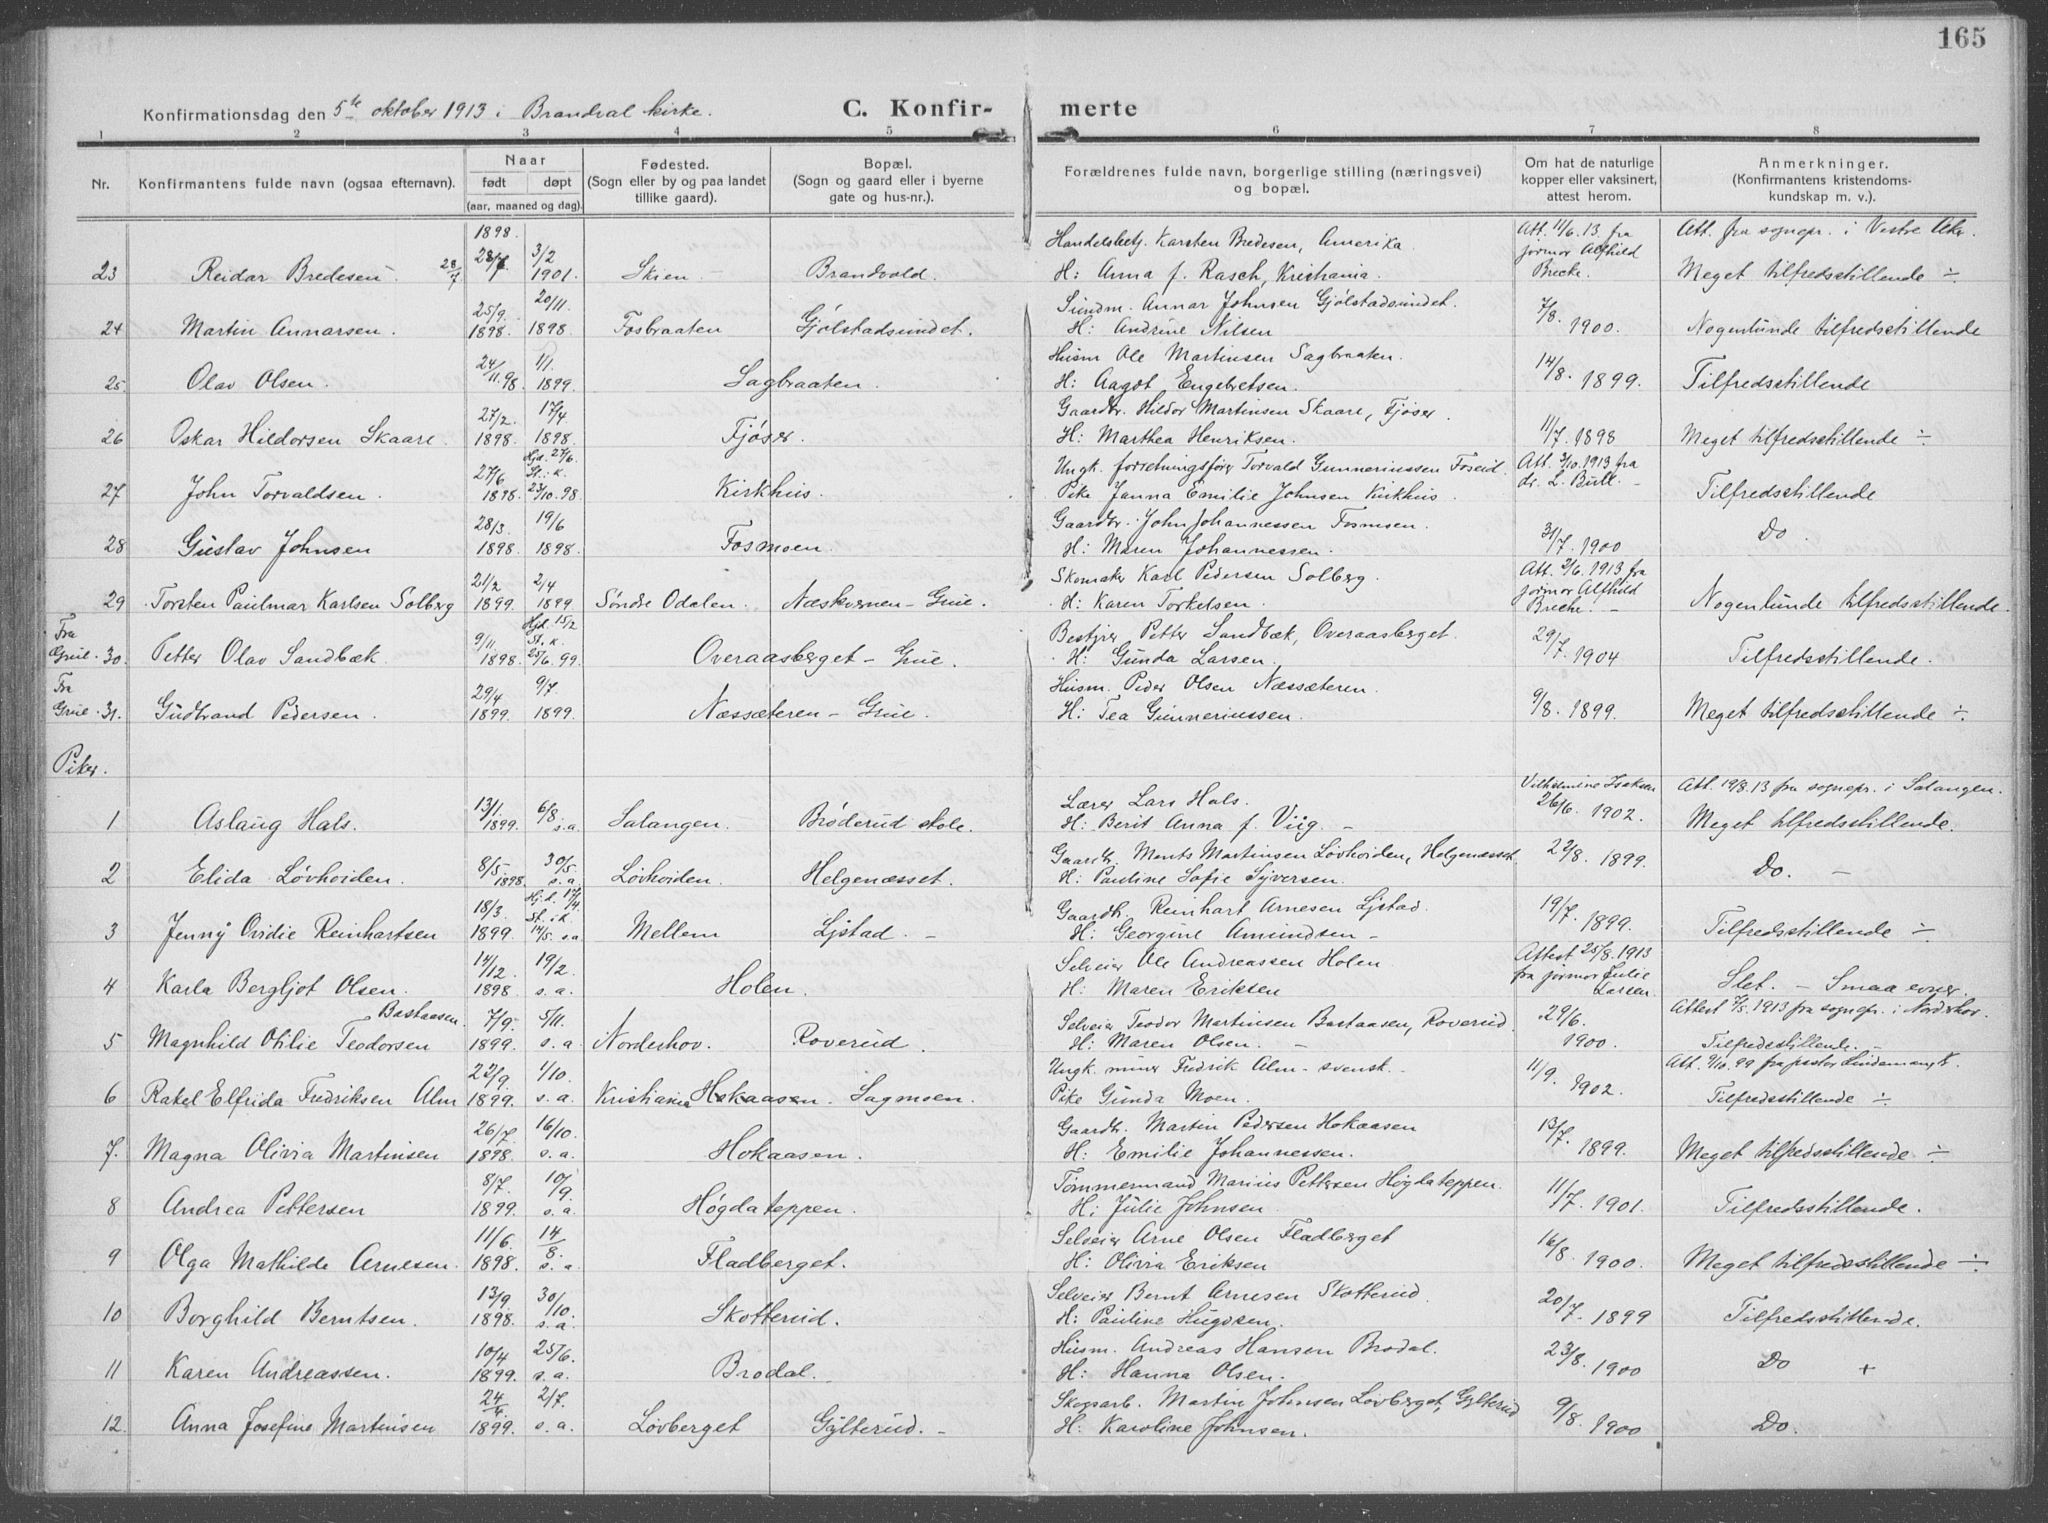 165
Konfirmationsdag den 5te oktober 1913 i Brandval kirke. C. Konfir- merte
1 2 3 4 5 6 7 8
Nr. Konfirmantens fulde navn (ogsaa efternavn). Naar født døpt (aar, maaned og dag). Fødested. (Sogn eller by og paa landet tillike gaard). Bopæl. (Sogn og gaard eller i byerne gate og hus-nr.). Forældrenes fulde navn, borgerlige stilling (næringsvei) og bopæl. Om hat de naturlige kopper eller vaksinert, attest herom. Anmerkninger. (Konfirmantens kristendoms- kundskap m. v.).
1898. Handelsbetj. Karsten Bredesen, Amerika Att. 11/6. 13 fra jormor Alfhild Brecke. Att. fra sognepr. i Vestre Aker
23 Reidar Bredesen 28/7 3/2 1901. Skien – Brandvold. H: Anna f. Rasch, Kristiania. Meget tilfredsstillende ÷
25/9. 20/11. Sundm. Annar Johnsen Gjølstadsundet. 7/8.
24 Martin Annarsen. 1898. 1898. Fosbraaten Gjølstadsundet. H: Andrine Nilsen 1900. Nogenlunde tilfredsstillende
24/11.98. 1/1. Husm Ole Martinsen Sagbraaten. 14/8. 1899.
25 Olav Olsen. 1899. Sagbraaten. H: Aagot Engebretsen. Tilfredsstillende
27/2. 17/4 Gaardbr. Hildor Martinsen Skaare, Fjøser.
26 Oskar Hildorsen Skaare. 1898. 1898. Fjøser. H: Marthea Henriksen. 11/7. 1898 Meget tilfredsstillende ÷
27/6 Hjd. 27/6. St. i. k. Ungk. forretningsfører Torvald Gunneriussen Foseid. Att. 3/10. 1913 fra dr. L. Bull. –
27 John Torvaldsen. 1898. 23/10. 98. Kirkhus. Pike Janna Emilie Johnsen Kirkhus. Tilfredsstillende
28/3. 19/6 Gaardbr. John Johannessen Fosmoen.
28 Gustav Johnsen 1898. 1898. Fosmoen. H: Maren Johannessen. 31/7. 1900 Do.
21/2 2/4 Skomaker Karl Pedersen Solberg. Att. 2/6. 1913 fra jormor Alfhild Brecke. –
29 Torsten Paulmar Karlsen Solberg 1899. 1899. Søndre Odalen. Næskvernen – Grue. H: Karen Torkelsen. Nogenlunde tilfredsstillende.
Fra Grue. 9/11. Hjd. 15/2 St. i. k. Bestyrer Petter Sandbæk, Overaasberget. 29/7. 1904
30. Petter Olav Sandbæk. 1898. 25/6. 99. Overaasberget – Grue. H: Gunda Larsen. Tilfredsstillende.
Fra Grue. 29/4 9/7. Husm. Peder Olsen Næssæteren.
31. Gudbrand Pedersen. 1899. 1899. Næssæteren – Grue. H: Tea Gunneriussen. 9/8. 1899. Meget tilfredsstillende ÷
Piker.
13/1. 6/8. Lærer Lars Hals. Vilhelmine Isaksen 26/6. 1902. Att. 19/8. 13 fra sognepr. i Salangen.
1 Aslaug Hals. 1899. s.a. Salangen. Brøderud skole. H: Berit Anna f. Viig. – Meget tilfredsstillende.
8/5. 30/5 Gaardbr. Martinsen Løvhoiden, Helgenæsset. 22/8. 1899.
2 Elida Løvhoiden. 1898. s.a. Løvhoiden. Helgenæsset. H: Pauline Sofie Syversen. Do. –
18/3. Hj. d. 17/4. St. i. k. Gaardbr. Reinhart Arnesen Ljstad. 19/7. 1899.
3 Jenny Ovidie Reinhartsen 1899. 14/5. s.a. Mellem Ljstad. – H: Georgine Amundsen – Tilfredsstillende ÷
14/12. 19/2. Selveier Ole Andreassen Holen. Attest 25/8. 1913 fra jormor Julie Larsen.
4 Karla Bergljot Olsen. 1898. s. a. Holen. H: Maren Eriksen Slet. – Smaa evner.
Bastaasen. 7/9. 5/11. Selveier Teodor Martinsen Bastaasen, Roverud. 29/6. 1900. Attest 1913 fra sognepr. i Nordshov.
5 Magnhild Otilie Teodorsen 1899. s. a. Nordeshov. Roverud. H: Maren Olsen. – Tilfredsstillende. –
22/9. 1/10. Ungk. miner Fredrik Alm – svensk. 11/9. 1902. Att. 1/10. 99 fra pastor
6 Rakel Elfrida Fredriksen Alm 1899. s. a. Kristiania Hokaasen. Sagmoen. Pike Gunda Moen. Tilfredsstillende ÷
26/7. 16/10. Gaardbr. Martin Pedersen Hokaasen 13/7. 1899.
7. Magna Olivia Martinsen 1898. s. a. Hokaasen. H: Emilie Johannessen. Meget tilfredsstillende ÷
8/7. 10/9. Tømmermand Marius Pettersen Høgdateppen.
8 Andrea Pettersen 1899. s. a. Høgdateppen. H: Julie Johnsen. 11/7. 1901. Tilfredsstillende.
11/6. 14/8. Selveier Arne Olsen Fladberget 16/8. 1900.
9 Olga Mathilde Arnesen. 1898. s. a. Fladberget. H: Olivia Eriksen Meget tilfredsstillende ÷
13/9. 30/10. Selveier Bernt Arnesen Skotterud. 20/7. 1899
10 Borghild Berntsen. 1898. s. a. Skotterud. H: Pauline Hugosen. Tilfredsstillende.
10/4 25/6. Husm. Andreas Hansen Brodal. 23/8. 1900
11 Karen Andreassen. 1899. s. a. Brodal. H: Hanna Olsen. Do +
24/4. 2/7. Skogsarb. Martin Johnsen Løvberget, Gylterud 9/8. 1900
12. Anna Josefine Martinsen 1899. s. a. Løvberget Gylterud. – H: Karoline Johnsen. Do.